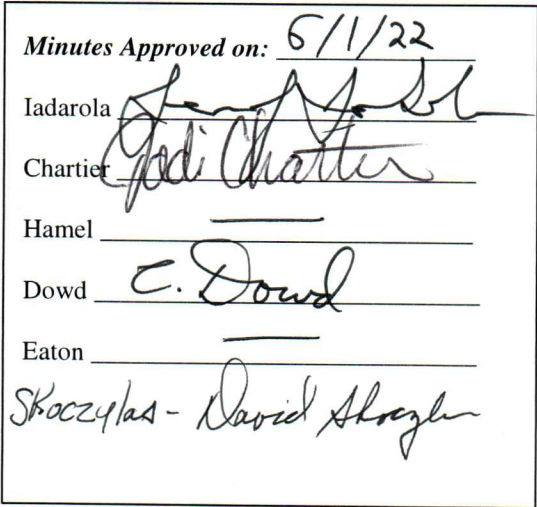 Minutes Approved on: 6/1/22
Iadarola
Chartier Jodi Chartier
Hamel —
Dowd C. Dowd
Eaton —
Skoczylas - David Skoczylas